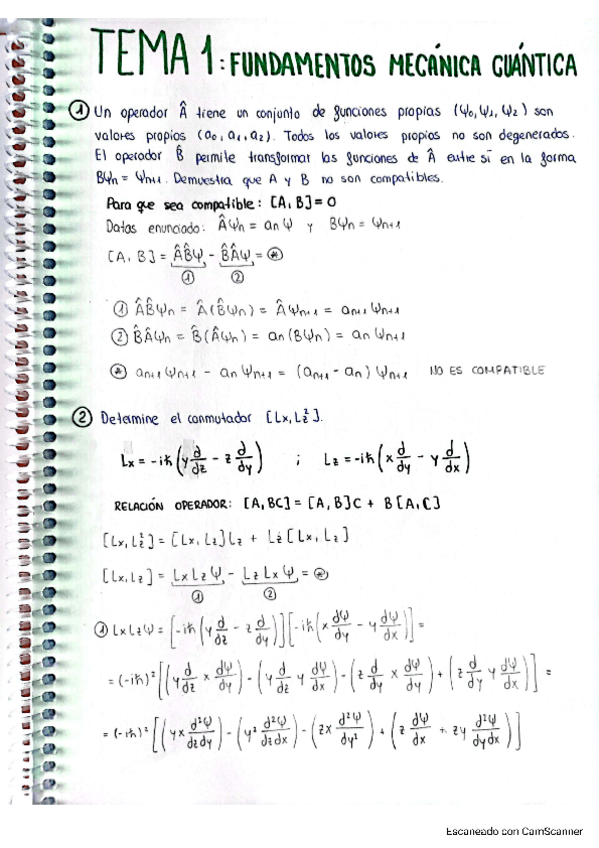 TEMA 1: FUNDAMENTOS MECÁNICA CUÁNTICA
① Un operador Â tiene un conjunto de funciones propias (Ψ₀, Ψ₁, Ψ₂) son
valores propios (a₀, a₁, a₂). Todos los valores propios no son degenerados.
El operador B̂ permite transformar las funciones de Â entre sí en la forma
BΨn = Ψn+1. Demuestra que A y B no son compatibles.
Para que sea compatible: [A, B] = 0
Datos enunciado: ÂΨn = an Ψ y BΨn = Ψn+1
[A, B] = ÂB̂Ψ - B̂ÂΨ = ⊛
① ②
① ÂB̂Ψn = Â(B̂Ψn) = ÂΨn+1 = an+1 Ψn+1
② B̂ÂΨn = B̂(ÂΨn) = an(BΨn) = an Ψn+1
⊛ an+1 Ψn+1 - an Ψn+1 = (an+1 - an) Ψn+1 NO ES COMPATIBLE
② Determine el conmutador [Lx, Lz²].
Lx = -iħ(y d/dz - z d/dy) ; Lz = -iħ(x d/dy - y d/dx)
RELACIÓN OPERADOR: [A, BC] = [A, B]C + B[A, C]
[Lx, Lz²] = [Lx, Lz]Lz + Lz[Lx, Lz]
[Lx, Lz] = LxLzΨ - LzLxΨ = ⊛
① ②
① LxLzΨ = [-iħ(y d/dz - z d/dy)][-iħ(x dΨ/dy - y dΨ/dx)] =
= (-iħ)²[(y d/dz x dΨ/dy) - (y d/dz y dΨ/dx) - (z d/dy x dΨ/dy) + (z d/dy y dΨ/dx)] =
= (-iħ)²[(yx d²Ψ/dzdy) - (y² d²Ψ/dzdx) - (zx d²Ψ/dy²) + (z dΨ/dx + zy d²Ψ/dydx)]
Escaneado con CamScanner